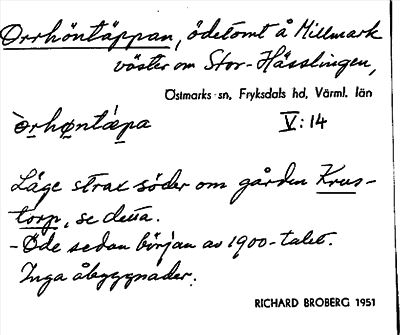 Orrhöntäppan, ödetomt å Millmark
väster om Stor-Hässlingen,
Östmarks sn, Fryksdals hd, Värml. län
òr̲hø̲ntä́p̲a
V:14
Läge strax söder om gården Krus-
torp, se detta.
- Öde sedan början av 1900-talet.
Inga åbyggnader.
RICHARD BROBERG 1951